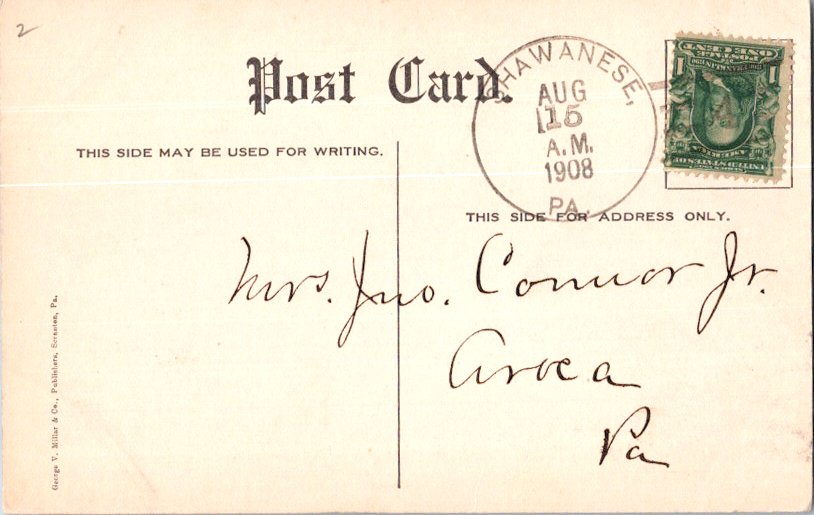 2
Post Card.
SHAWANESE,
AUG
15
A.M.
1908
PA.
ONE CENT
1 1
UNITED STATES OF
AMERICA
THIS SIDE MAY BE USED FOR WRITING.
THIS SIDE FOR ADDRESS ONLY.
Mrs. Jno. Connor Jr.
Avoca
Pa
George V. Millar & Co., Publishers, Scranton, Pa.